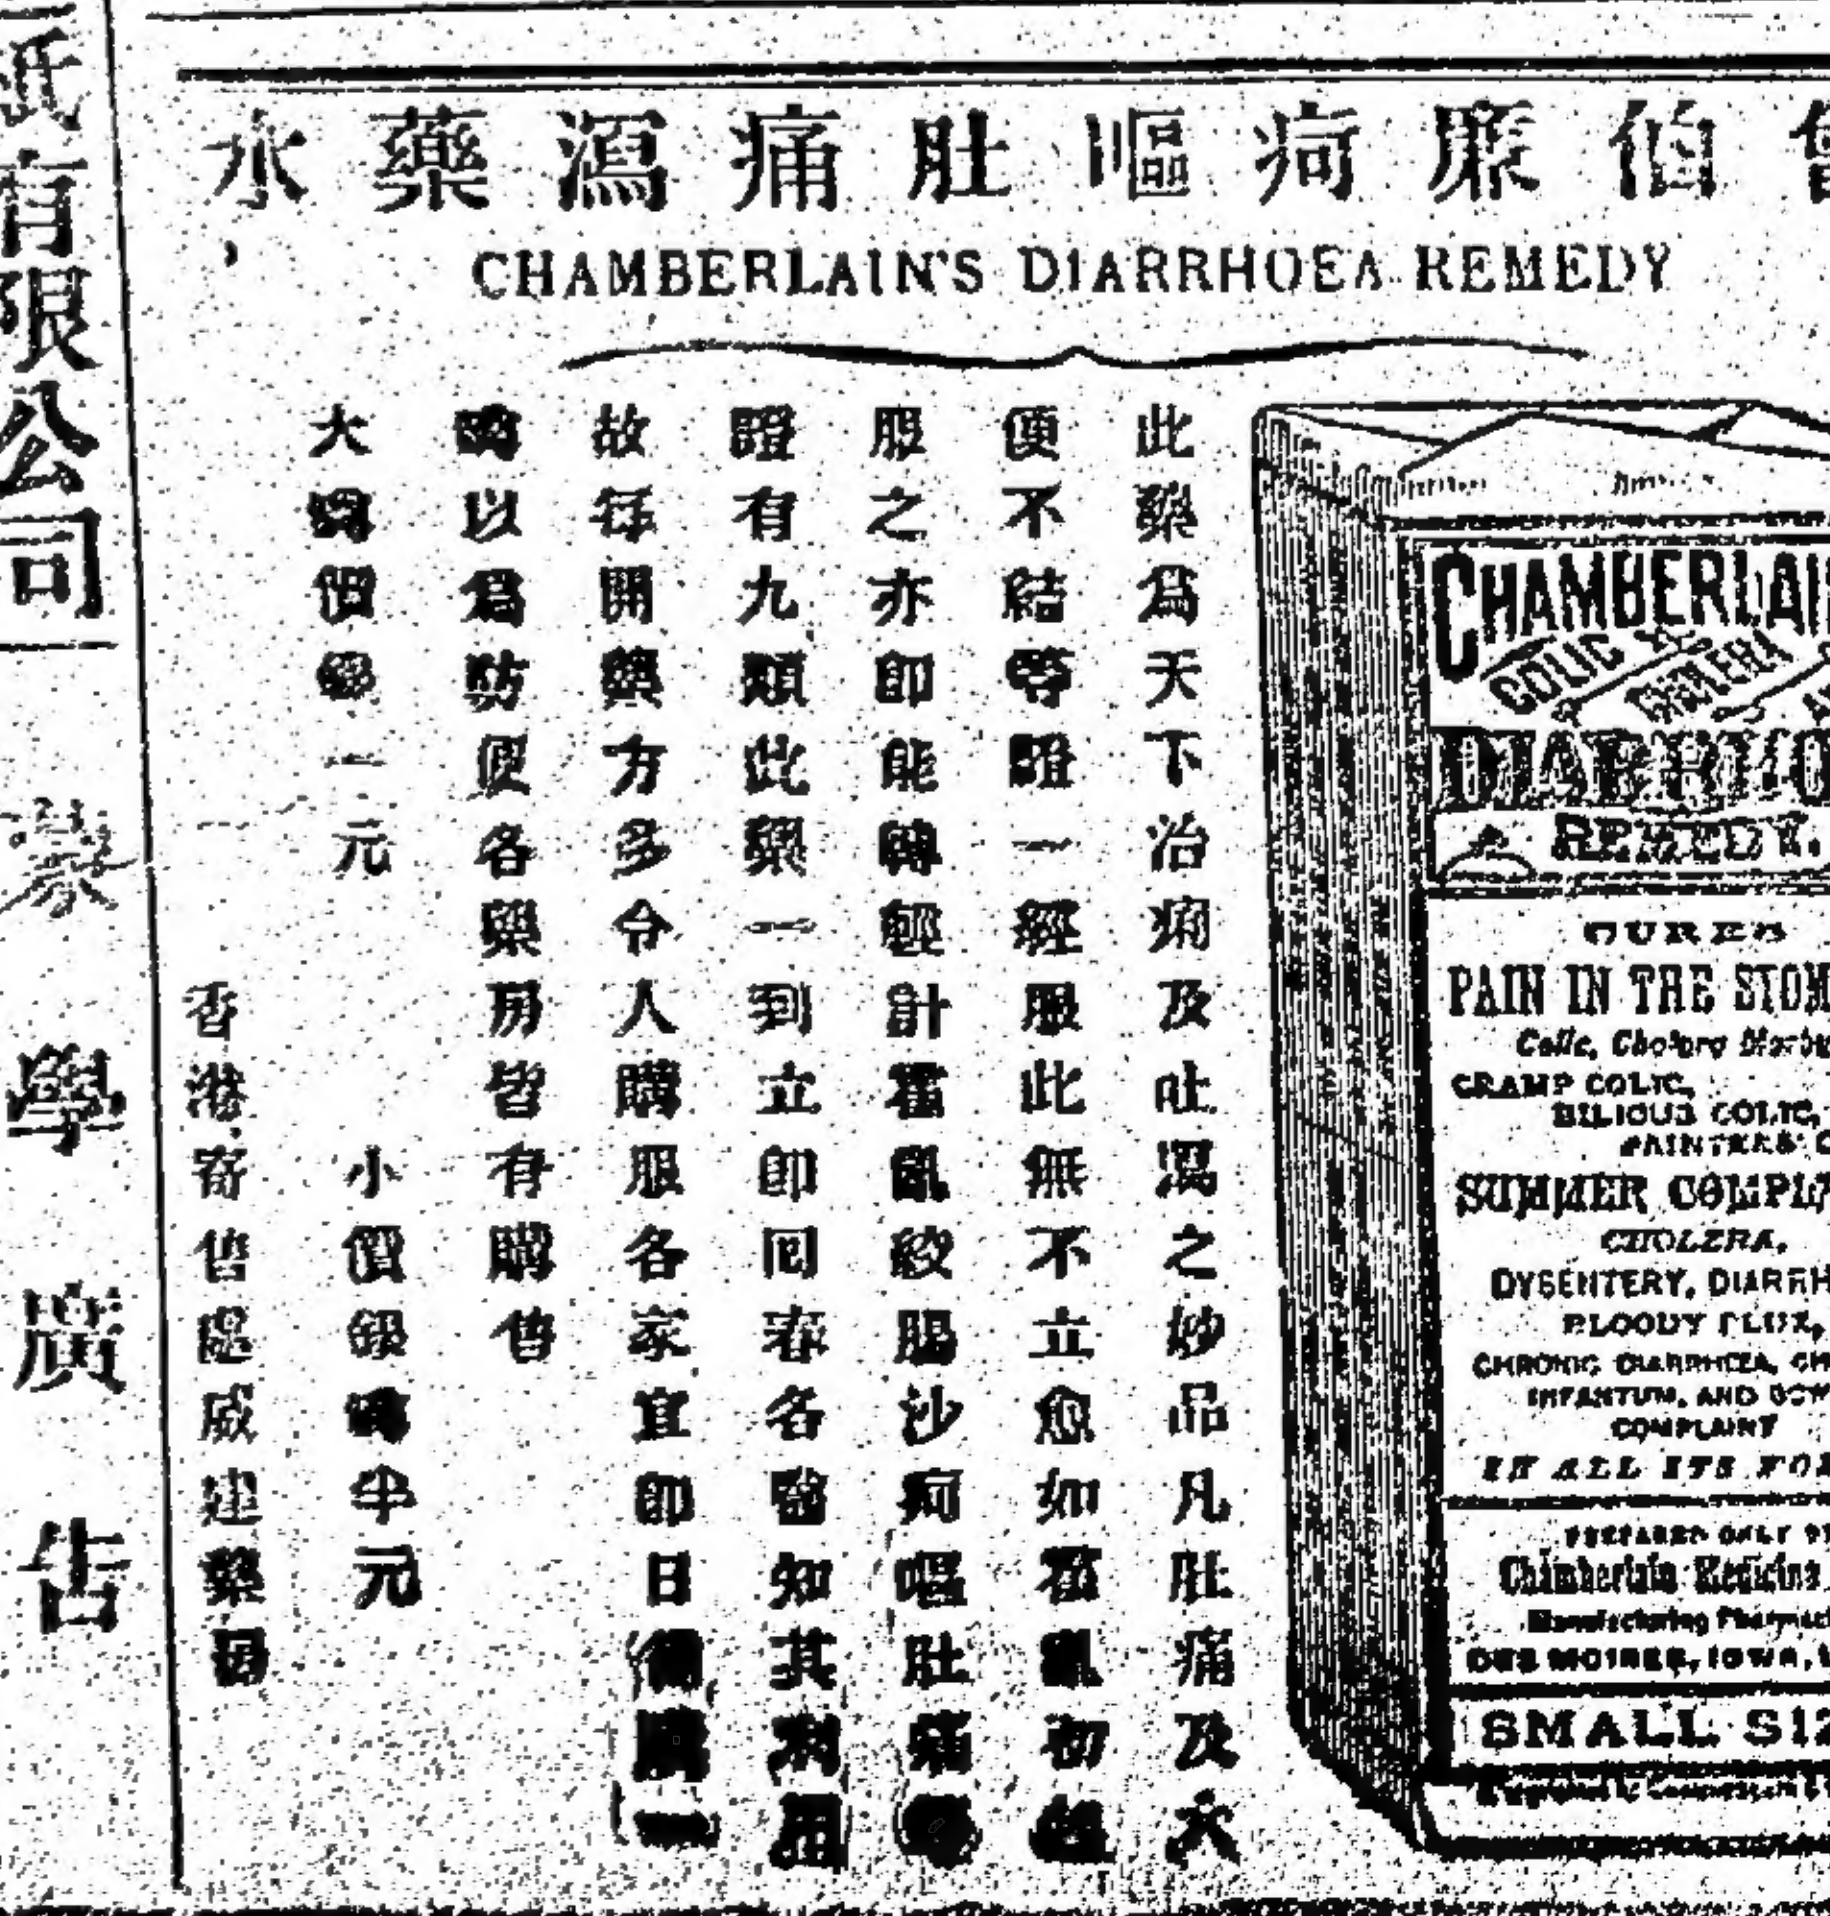 伯廉痾嘔肚痛瀉藥水
CHAMBERLAIN'S DIARRHOEA REMEDY
此藥為天下治痾及吐瀉之妙品凡肚痛及大
便不結等證一經服此無不立愈如霍亂初起
服之亦即能轉輕計霍亂絞腸沙痾嘔肚痛等
證有九類此藥一到立即回春各醫知其利用
故每開藥方多令人購服各家宜即日備購一
以為防便各藥房皆有購售
大價一元 小價銀半元
香港寄售處威建藥房
CHAMBERLAIN
COLIC
CHOLERA
DIARRHO
REMEDY.
CURES
PAIN IN THE STOM
Colic, Cholera Morbu
CRAMP COLIC,
BILIOUS COLIC,
PAINTERS' C
SUMMER COMPLA
CHOLERA,
DYSENTERY, DIARRH
BLOODY FLUX,
CHRONIC DIARRHOEA, CH
INFANTUM, AND BOW
COMPLAINT
IN ALL ITS FOR
PREPARED ONLY BY
Chamberlain Medicine
Manufacturing Pharmac
DES MOINES, IOWA, U
SMALL SIZ
紙有限公司
蒙學廣告